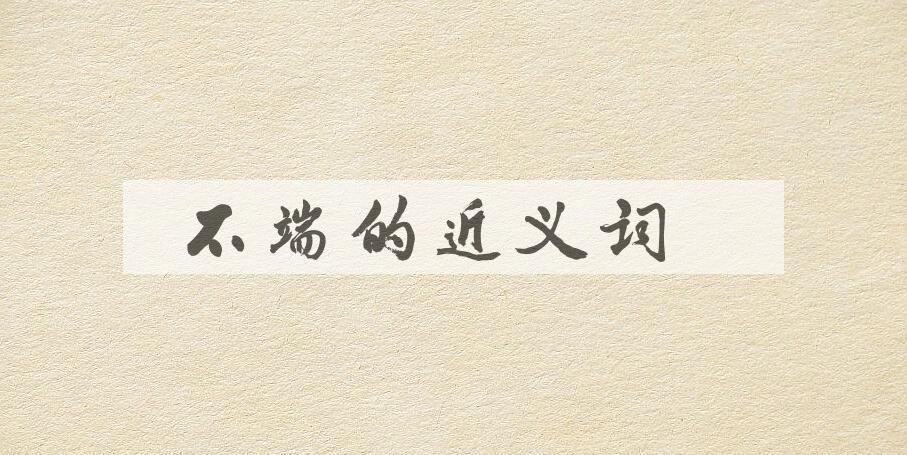 不端的近义词